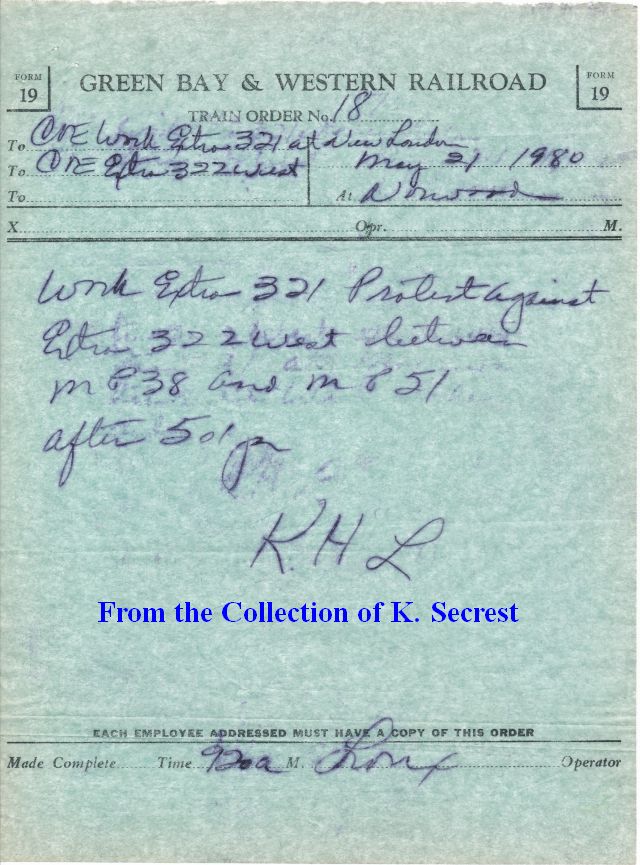 FORM 19
GREEN BAY & WESTERN RAILROAD
FORM 19
TRAIN ORDER No. 18
To C&E Work Extra 321 at New London
To C&E Extra 322 West May 21 1980
To At Norwood
X Opr. M.
Work Extra 321 Protect against
Extra 322 West between
MP 38 and MP 51
after 501 pm
K. H L
From the Collection of K. Secrest
EACH EMPLOYEE ADDRESSED MUST HAVE A COPY OF THIS ORDER
Made Complete Time M. Operator